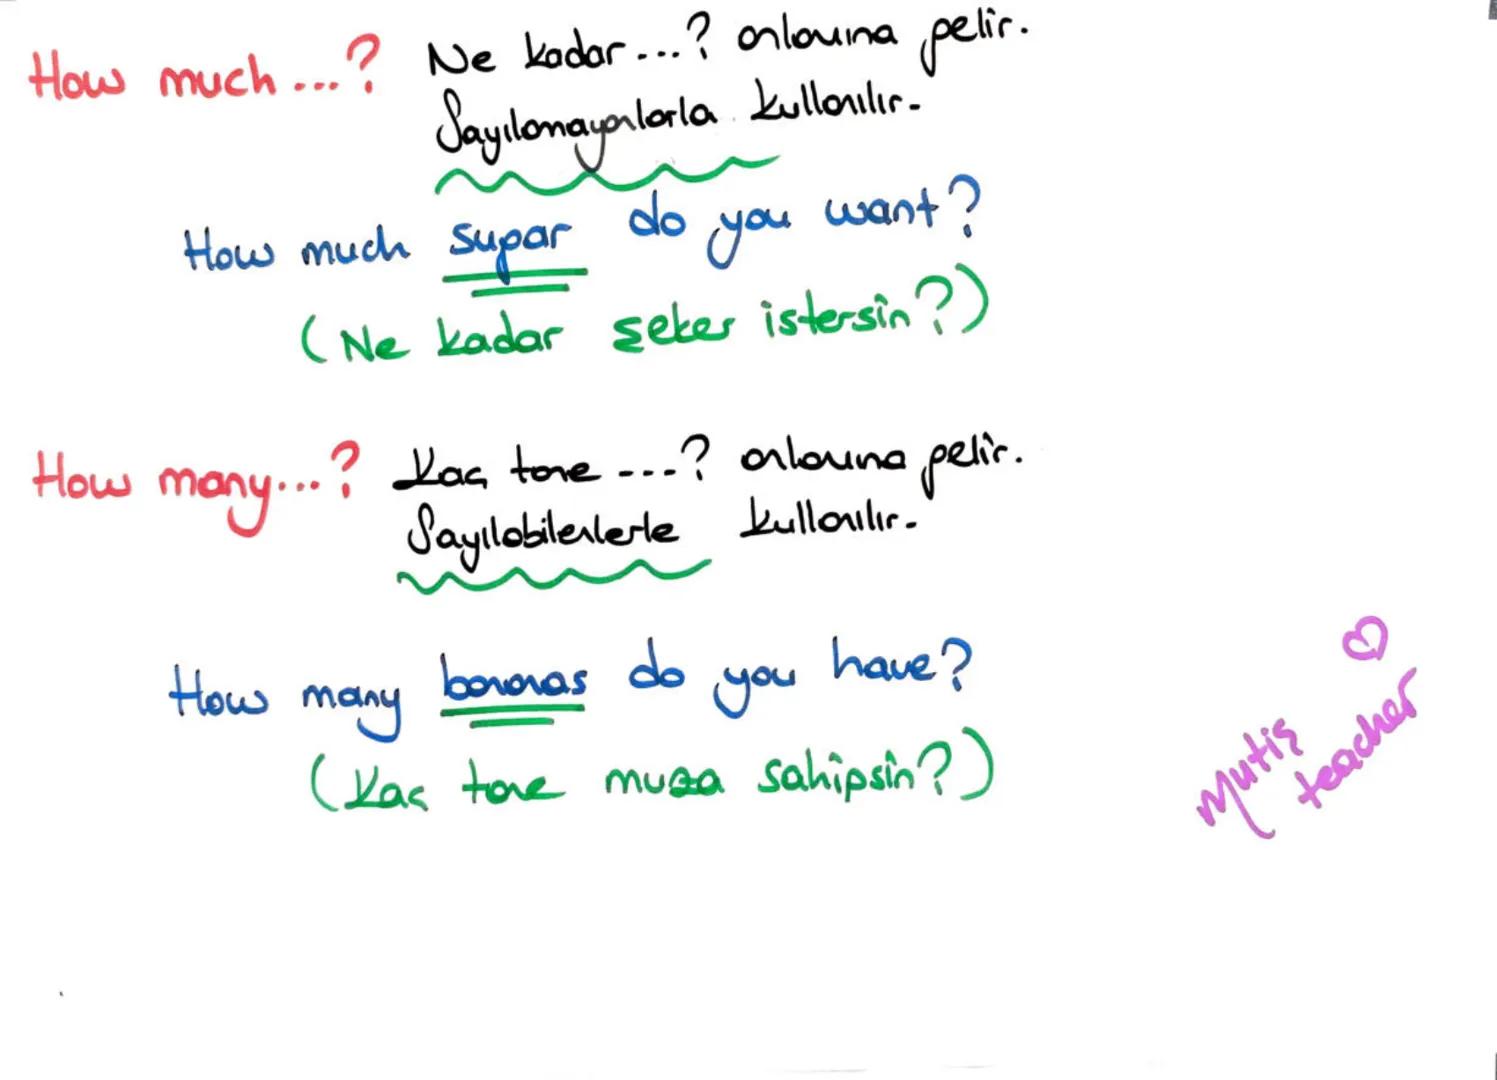 How much ...? Ne kadar ...? anlamına gelir.
Sayılamayanlarla kullanılır.
How much sugar do you want?
(Ne kadar şeker istersin?)
How many...? Kaç tane ...? anlamına gelir.
Sayılabilenlerle kullanılır.
How many bananas do you have?
(Kaç tane muza sahipsin?)
Mutiş
teacher